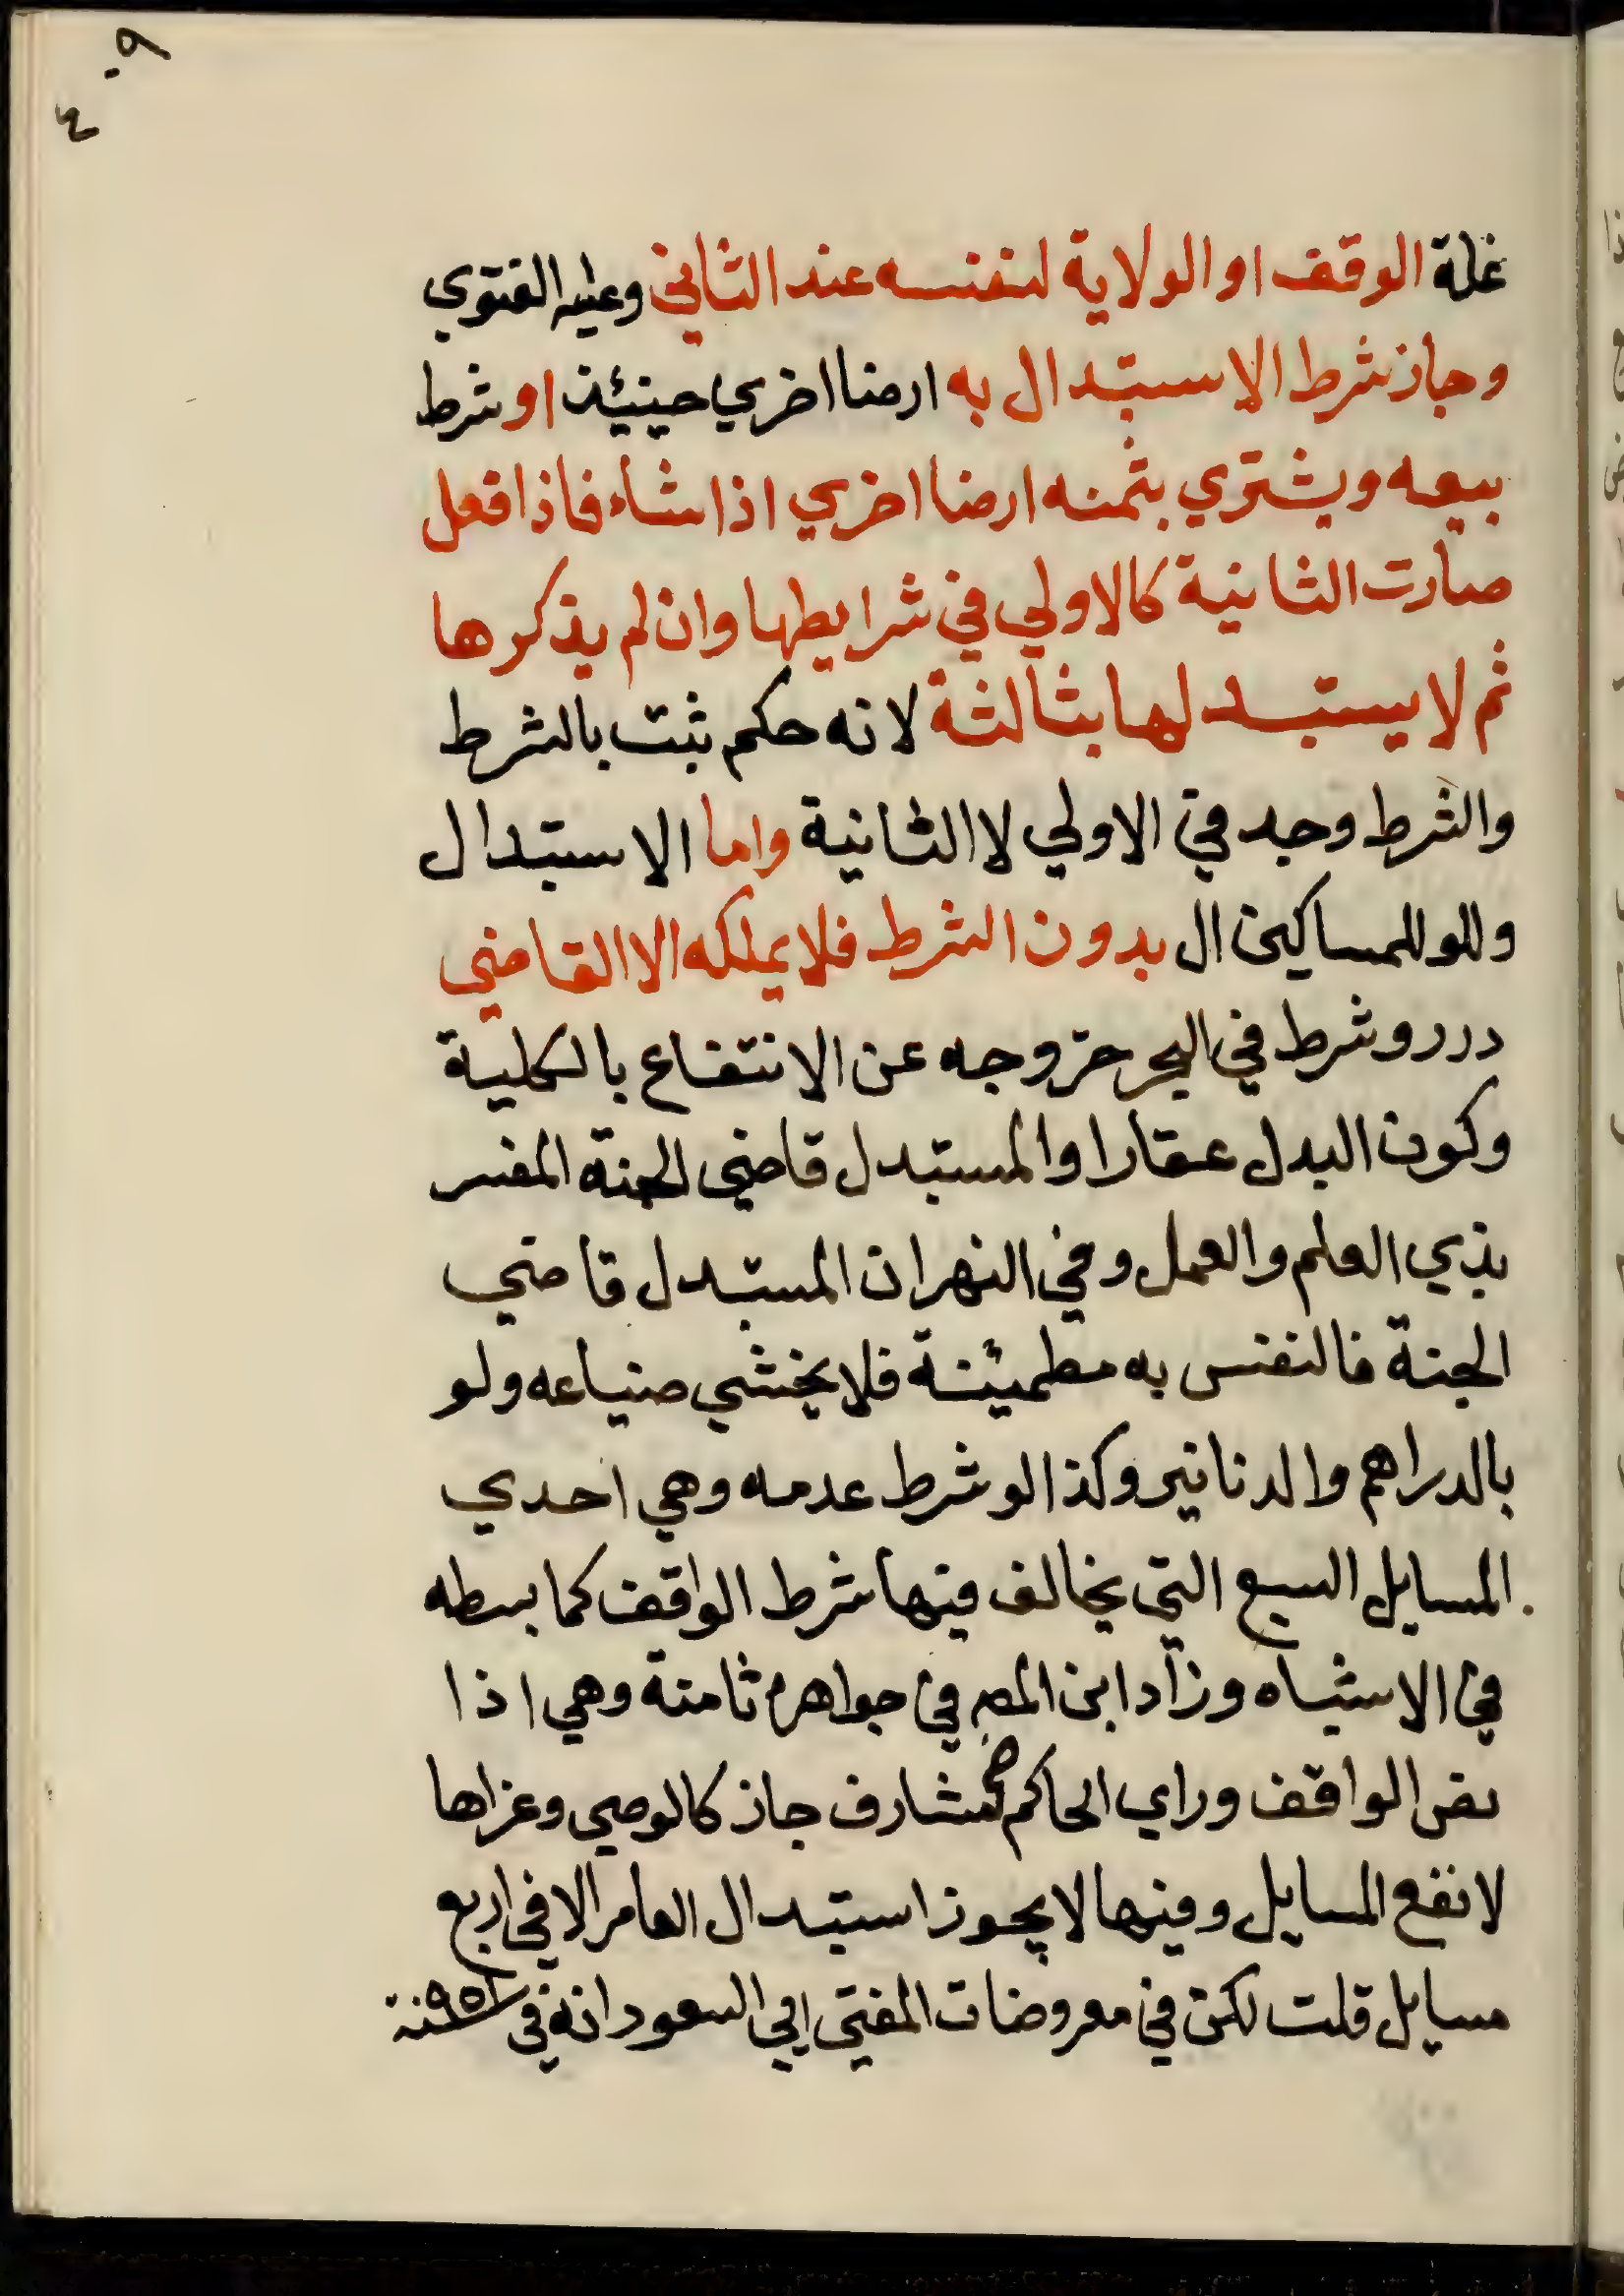 ٩٠
٤
غلة الوقف او الولاية لنفسه عند الثاني وعليه الفتوي
وجاز شرط الاستبدال به ارضا اخري حينيئذ او شرط
بيعه ويشتري بثمنه ارضا اخري اذا شاء فاذا فعل
صارت الثانية كالاولي في شرايطها وان لم يذكرها
ثم لا يستبدلها بثالثة لانه حكم ثبت بالشرط
والشرط وجد في الاولي لا الثانية واما الاستبدال
وللو للمساكين ال بدون الشرط فلا يملكه الا القاضي
درر وشرط في البحر خروجه عن الانتفاع بالكلية
وكون البدل عقارا والمستبدل قاضي الجنة المفسر
بذي العلم والعمل وفي النهر ان المستبدل قاضي
الجنة فالنفس به مطمئنة فلا يخشي ضياعه ولو
بالدراهم والدنانير وكذا لو شرط عدمه وهي احدي
المسايل السبع التي يخالف فيها شرط الواقف كما بسطه
في الاشباه وزاد ابن المص في جواهره ثامنة وهي اذا
نص الواقف وراي الحاكم ضم مشارف جاز كالوصي وعزاها
لانفع المسايل وفيها لا يجوز استبدال العامر الا في اربع
مسايل قلت لكن في معروضات المفتي ابي السعود انه في سنة ٩٥١